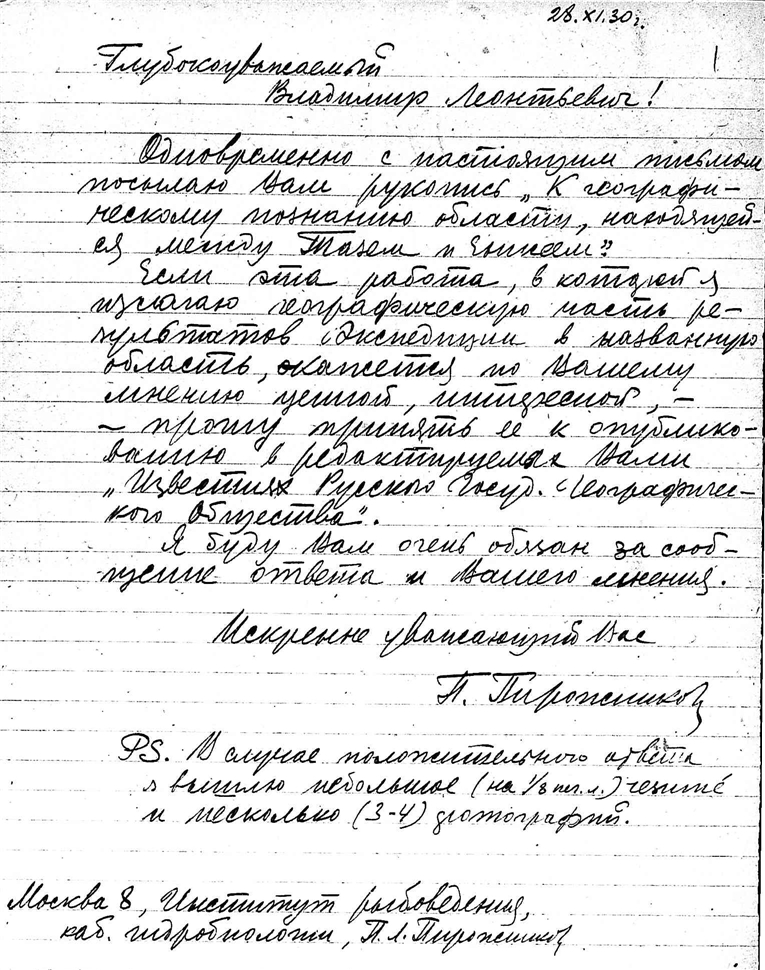 28.XI.30г.
1
Глубокоуважаемый
Владимир Леонтьевич!
Одновременно с настоящим письмом
посылаю Вам рукопись „К географи-
ческому познанию области, находящей-
ся между Тазем и Енисеем"
Если эта работа, в которой я
излагаю географическую часть ре-
зультатов Экспедиции в названную
область, окажется по Вашему
мнению ценной, интересной, –
– прошу принять ее к опублико-
ванию в редактируемых Вами
„Известиях Русского Госуд. Географичес-
кого Общества".
Я буду Вам очень обязан за сооб-
щение ответа и Вашего мнения.
Искренне уважающий Вас
П. Пирожников
PS. В случае положительного ответа
я вышлю небольшое (на 1/8 печ. л.)
и несколько (3-4) фотографий.
Москва 8, Институт рыбоведения,
каб. гидробиологии, П.Л. Пирожников